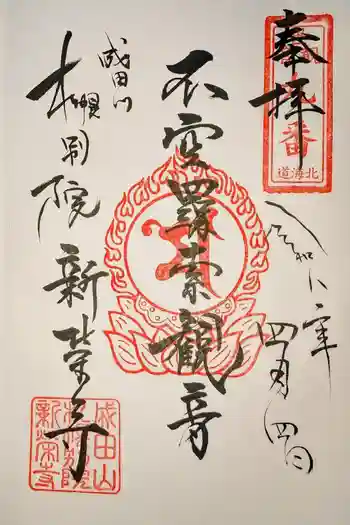 奉拝
番
北海道
令和八年四月四日
不空羂索觀音
成田山
札幌別院 新栄寺
成田山
札幌別院
新栄寺